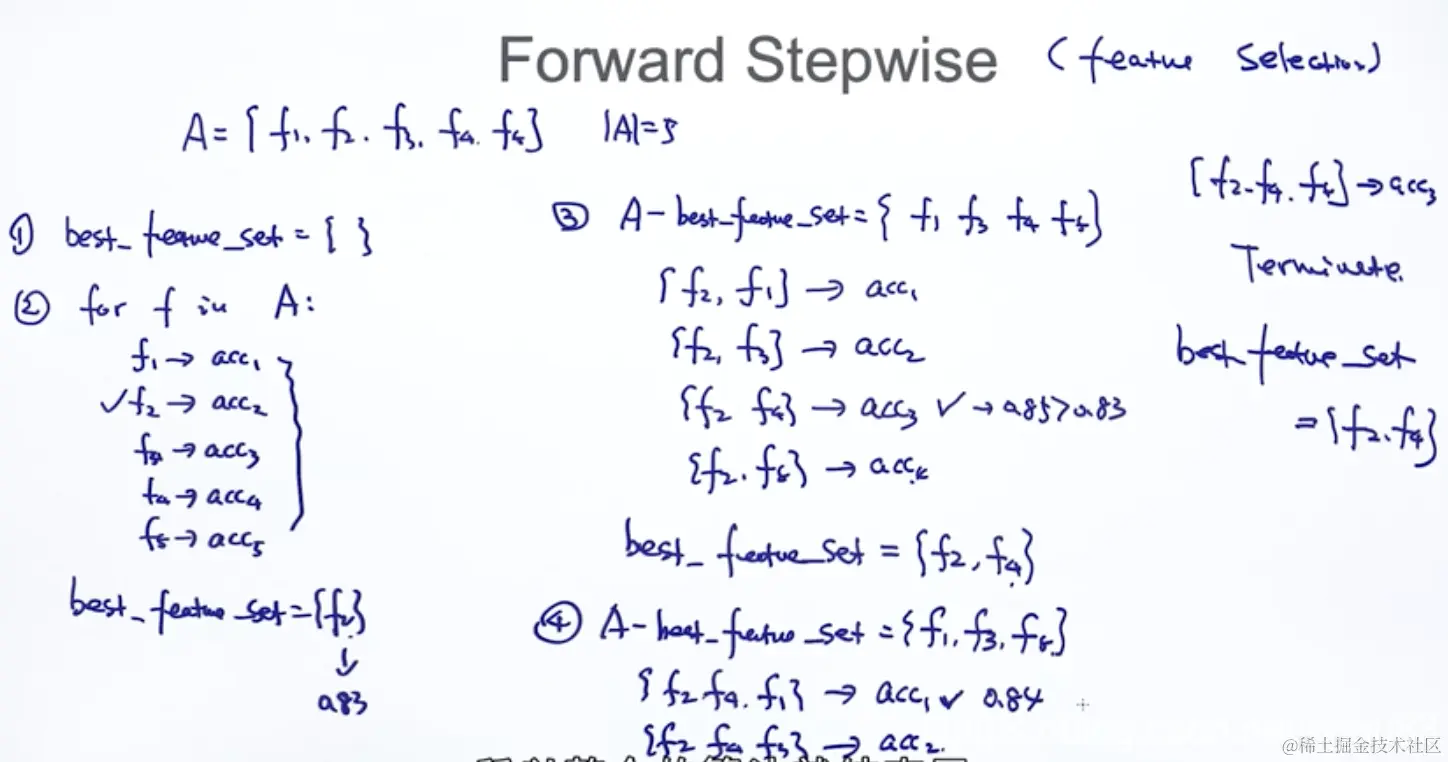 Forward Stepwise (feature selection)
A = {f₁. f₂. f₃. f₄. f₅} |A|=5
① best_feature_set = { }
② for f in A:
f₁ → acc₁
✓f₂ → acc₂
f₃ → acc₃
f₄ → acc₄
f₅ → acc₅
best_feature_set={f₂}
↓
0.83
③ A-best_feature_set={ f₁ f₃ f₄ f₅}
{f₂, f₁} → acc₁
{f₂, f₃} → acc₂
{f₂ f₄} → acc₃ ✓ → 0.85>0.83
{f₂. f₅} → acc₄
best_feature_set = {f₂, f₄}
④ A-best_feature_set={f₁. f₃. f₅}
{f₂ f₄. f₁} → acc₁ ✓ 0.84
{f₂ f₄ f₃} → acc₂.
{f₂.f₄. f₅} → acc₃
Terminate.
best_feature_set
={f₂.f₄}
@稀土掘金技术社区